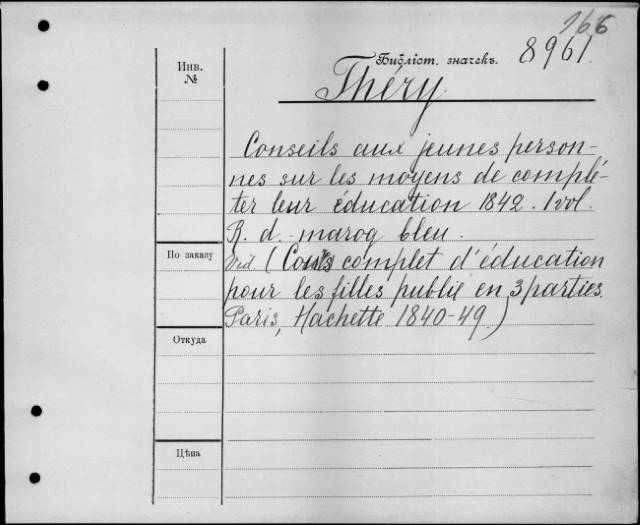 166
Инв.
№
Библіот. значекъ. 8961.
Théry
Conseils aux jeunes person-
nes sur les moyens de complé-
ter leur éducation 1842. 1 vol.
R. d. maroq bleu.
По заказу
(Cours complet d'éducation
pour les filles publié en 3 parties.
Paris, Hachette 1840-49.)
Откуда
Цѣна